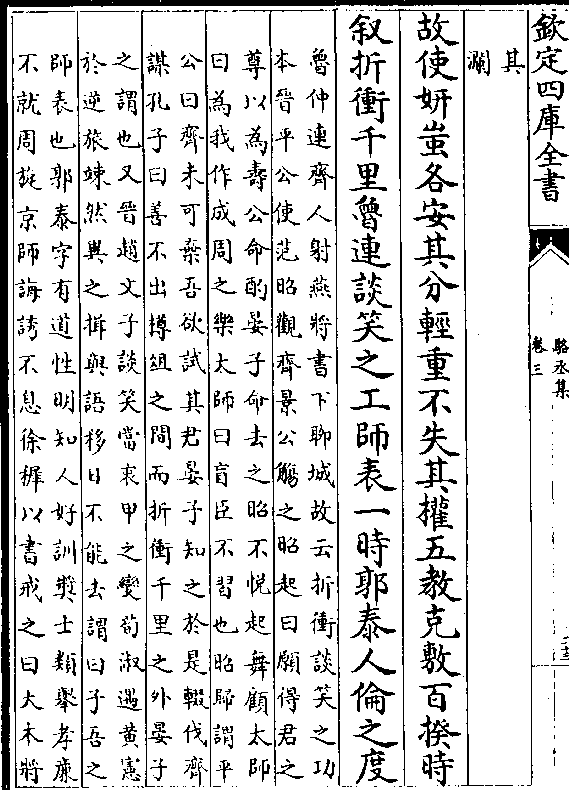 欽定四庫全書
駱丞集
卷三
其
瀾
故使妍蚩各安其分輕重不失其權五教克敷百揆時
叙折衝千里魯連談笑之工師表一時郭泰人倫之度
魯仲連齊人射燕將書下聊城故云折衝談笑之功
本晉平公使范昭觀齊景公觴之昭起曰願得君之
尊以為壽公命酌晏子命去之昭不悅起舞顧太師
曰為我作成周之樂太師曰盲臣不習也昭歸謂平
公曰齊未可棄吾欲試其君晏子知之於是輟伐齊
謀孔子曰善不出摶俎之間而折衝千里之外晏子
之謂也又晉趙文子談笑當衷甲之變荀淑遇黃憲
於逆旅竦然異之揖與語移日不能去謂曰子吾之
師表也郭泰字有道性明知人好訓奬士類舉孝亷
不就周旋京師誨誘不息徐穉以書戒之曰大木將